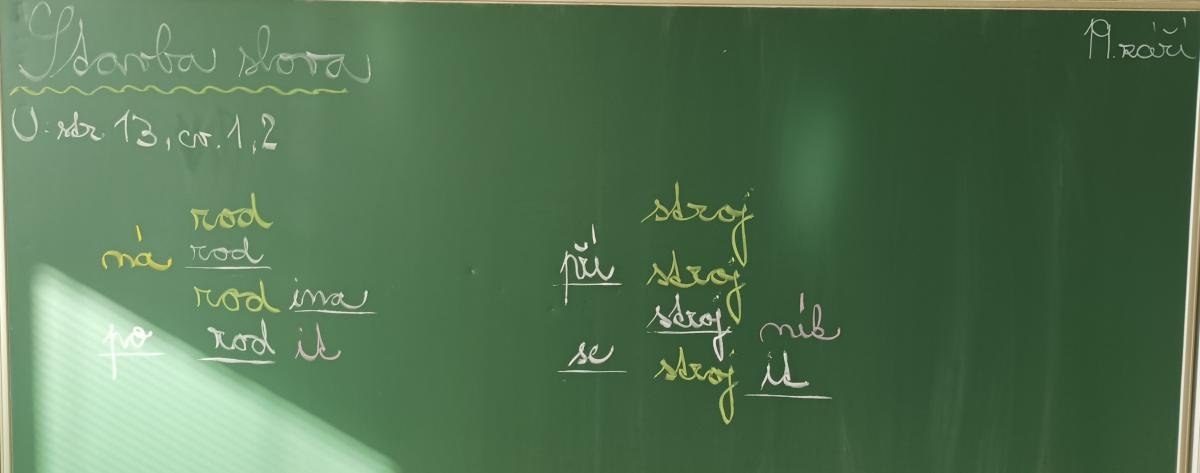 Stavba slova
19. září
U: str. 13, cv. 1, 2
rod
ná rod
rod ina
po rod it
stroj
pří stroj
stroj ník
se stroj it